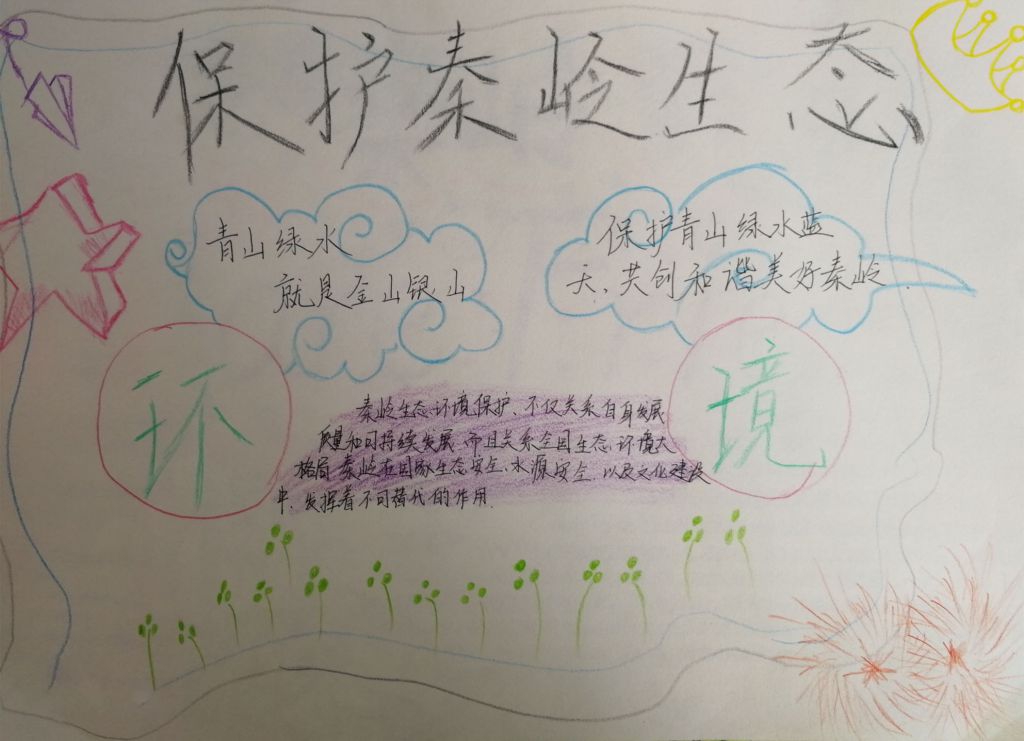 保护秦岭生态
青山绿水
就是金山银山
保护青山绿水蓝
天、共创和谐美好秦岭.
环
境
秦岭生态环境保护、不仅关系自身发展
质量和可持续发展、而且关系全国生态环境大
格局 秦岭在国家生态安全、水源安全、以及文化建设
中、发挥着不可替代的作用.